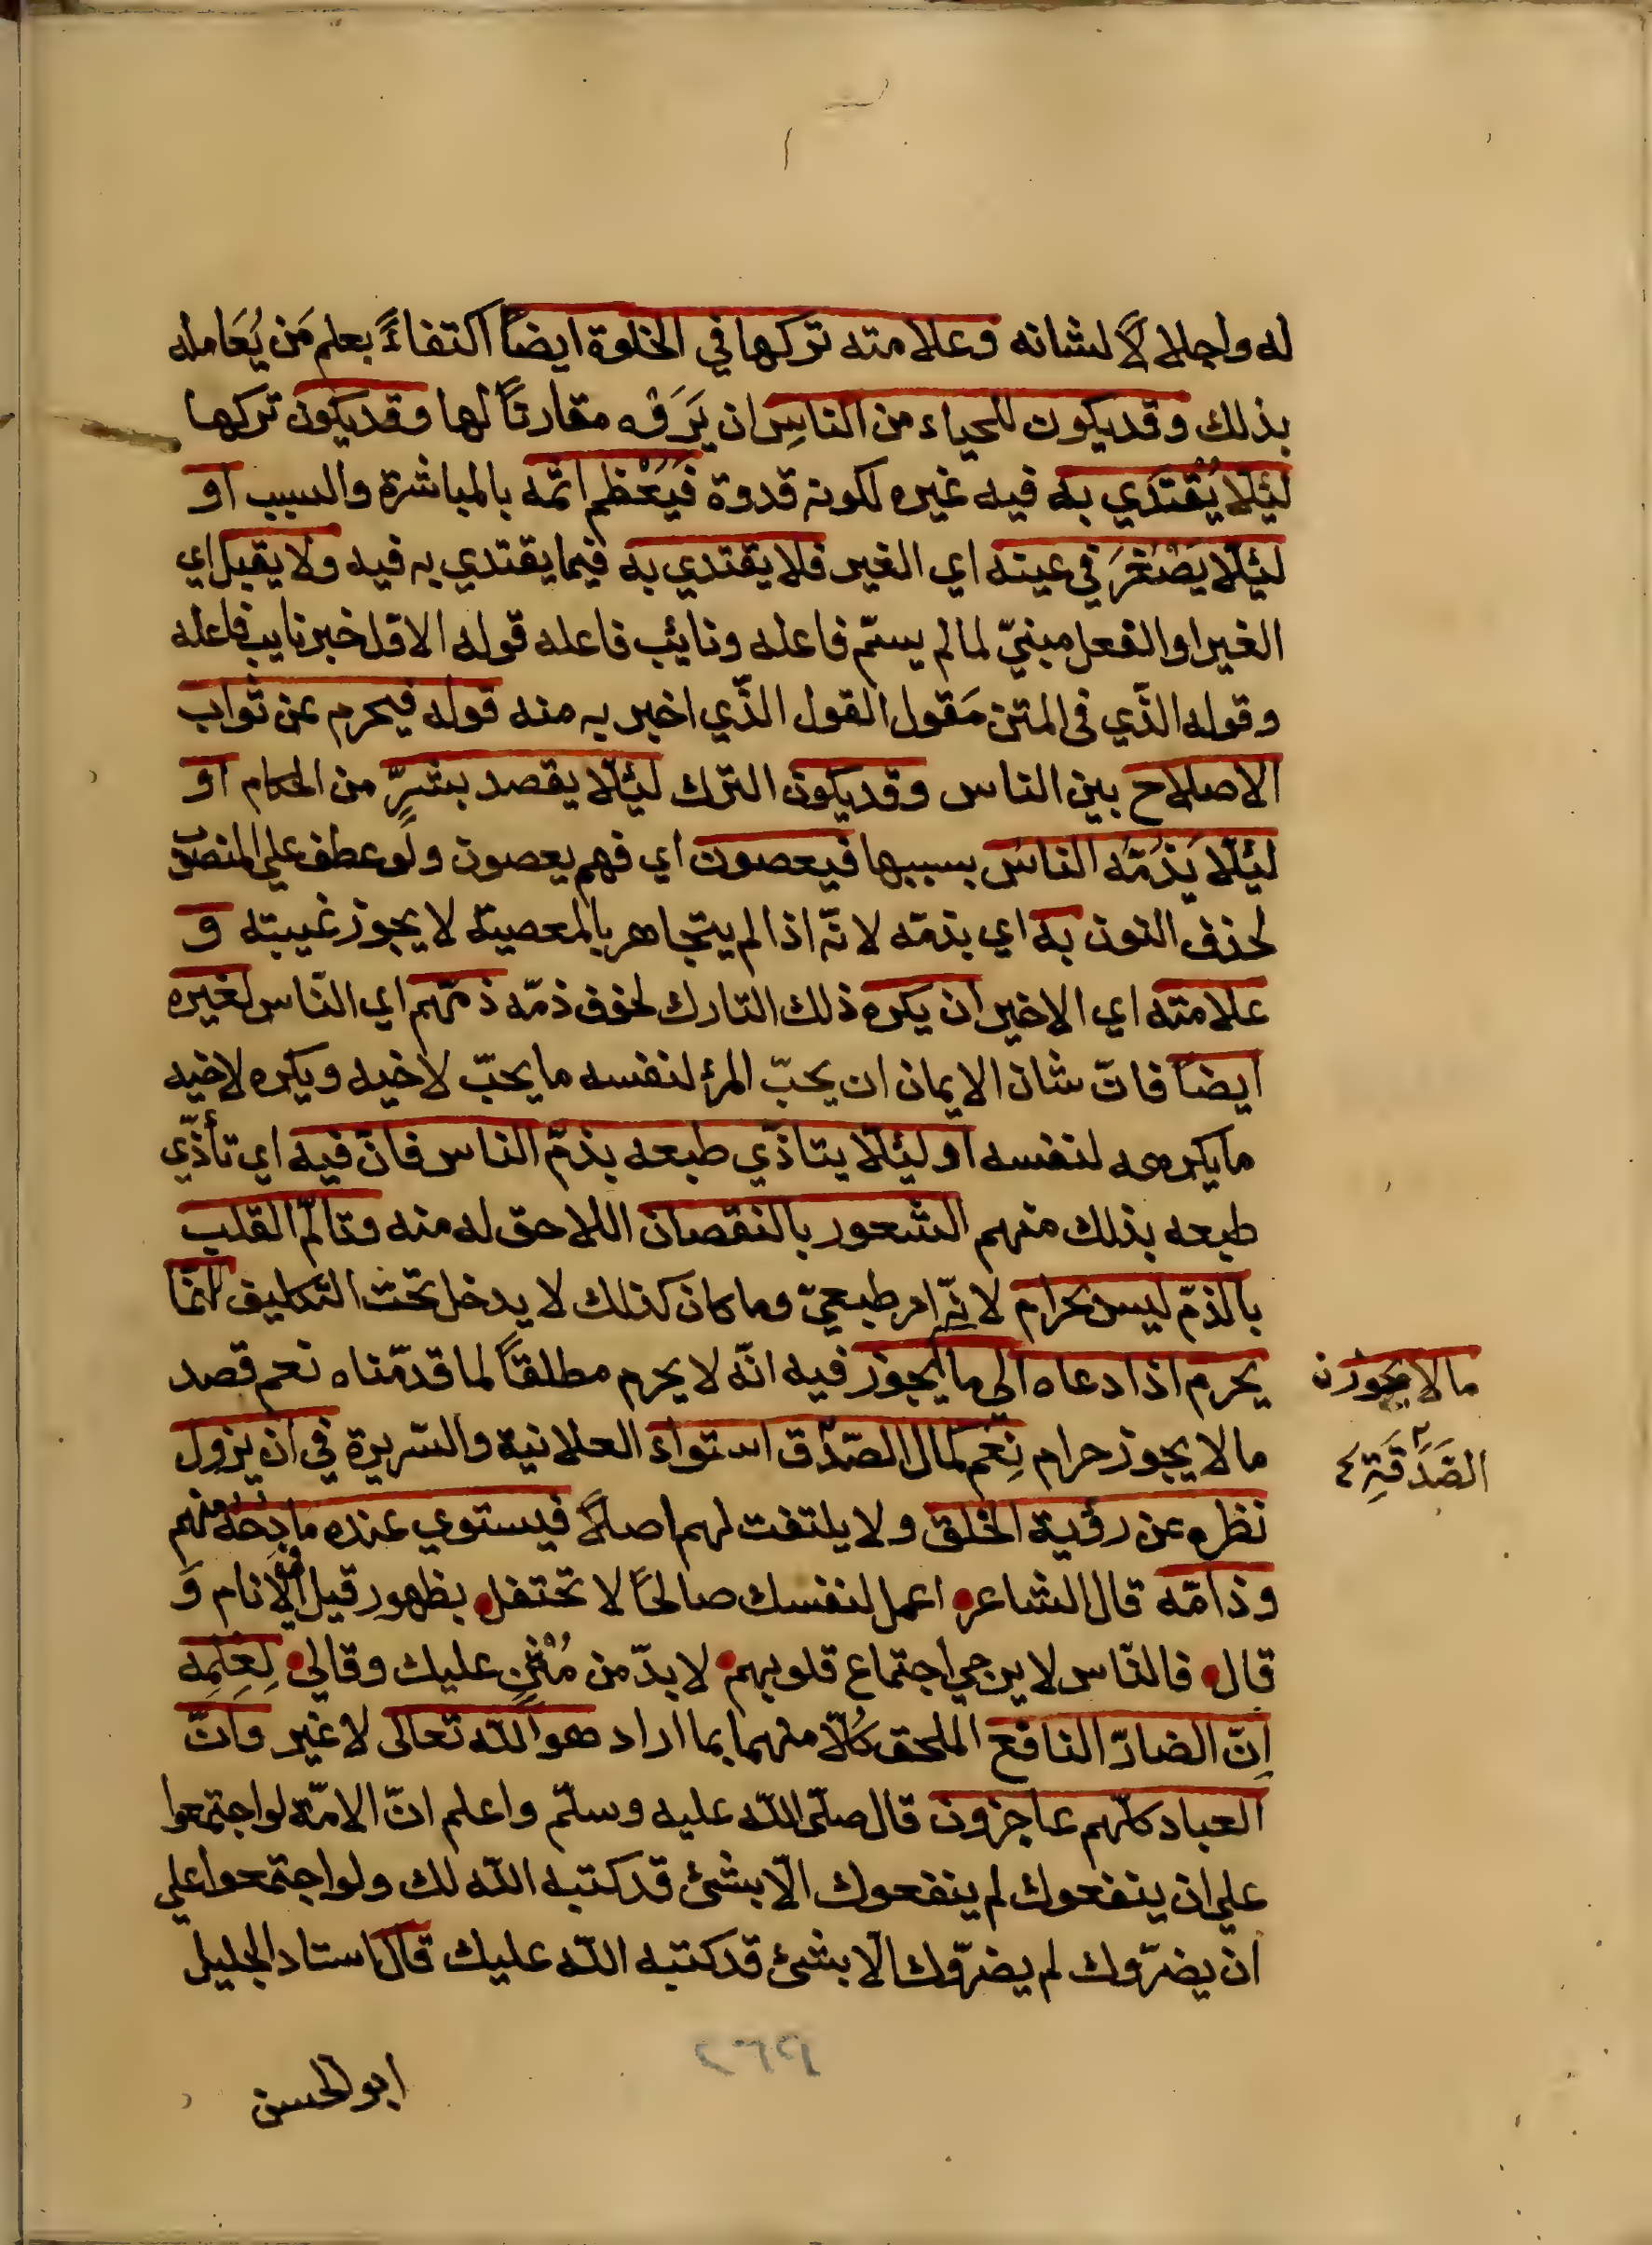 له واجلالاً لشانه وعلامته تركها في الخلوة ايضاً اكتفاءً بعلم مَن يُعَامله
بذلك وقد يكون للحياء من الناسِ ان يَرَوْه مقارناً لها وقد يكون تركها
لئلا يُقتدي به فيه غيره لكونه قدوة فيَعْظم اثمه بالمباشرة والسبب او
لئلّا يَصْغرَ في عينه اي الغير فلا يقتدي به فيما يقتدي به فيه ولا يقبل اي
الغير او الفعل مبنيّ لما لم يسمّ فاعله ونائب فاعله قوله الاول خبر نايب فاعله
وقوله الذّي في المتن مَقول القول الذّي اخبر به منه قوله فيحرم عن ثواب
الاصلاح بين الناس وقد يكون الترك لئلّا يقصد بشرٍّ من الحكام او
لئلّا يَذمّه الناس بسببها فيعصون اي فهم يعصون ولو عطف علي المنصوب
لحذف النون به اي بذمّه لانّه اذا لم يتجاهر بالمعصية لا يجوز غيبته و
علامته اي الاخير ان يكره ذلك التارك لخوف ذمّه ذمّهم اي النّاس لغيره
ايضاً فانّ شان الايمان ان يحبّ المرؤ لنفسه ما يحبّ لاخيه ويكره لاخيه
ما يكرهه لنفسه او لئلّا يتاذّي طبعه بذمّ الناس فانّ فيه اي تأذّي
طبعه بذلك منهم الشعور بالنقصان اللاحق له منه وتالّم القلب
بالذمّ ليس بحرام لانّه امر طبعيّ وما كان كذلك لا يدخل تحت التكليف انّما
يحرم اذا دعاه الى ما يجوز فيه انّه لا يحرم مطلقاً لما قدّمناه نعم قصد
ما لا يجوز حرام نِعَم كمال الصّدق استواء العلانية والسّريرة في ان يزول
نظره عن رؤية الخلق ولا يلتفت لهم اصلاً فيستوي عنده مادِحُهُ منهم
وذامّه قال الشاعر اعمل لنفسك صالحًا لا تحتفل بظهور قيل الانام و
قال فالنّاس لا يرجي اجتماع قلوبهم لا بدّ من مُثْنٍ عليك وقالي لِعِلمِه
اِنّ الضارّ النافع الملحق كُلّا منهما بما اراد هو اللّه تعالى لا غير وانّ
العباد كلّهم عاجزون قال صلّى اللّه عليه وسلّم واعلم انّ الامّة لو اجتمعوا
علي ان ينفعوك لم ينفعوك الّا بشئ قد كتبه اللّه لك ولو اجتمعوا علي
ان يضرّوك لم يضرّوك الّا بشئ قد كتبه اللّه عليك قال استاد الجليل
ابو الحسن
ما لا يجوز ن
الصَدَقَةِ